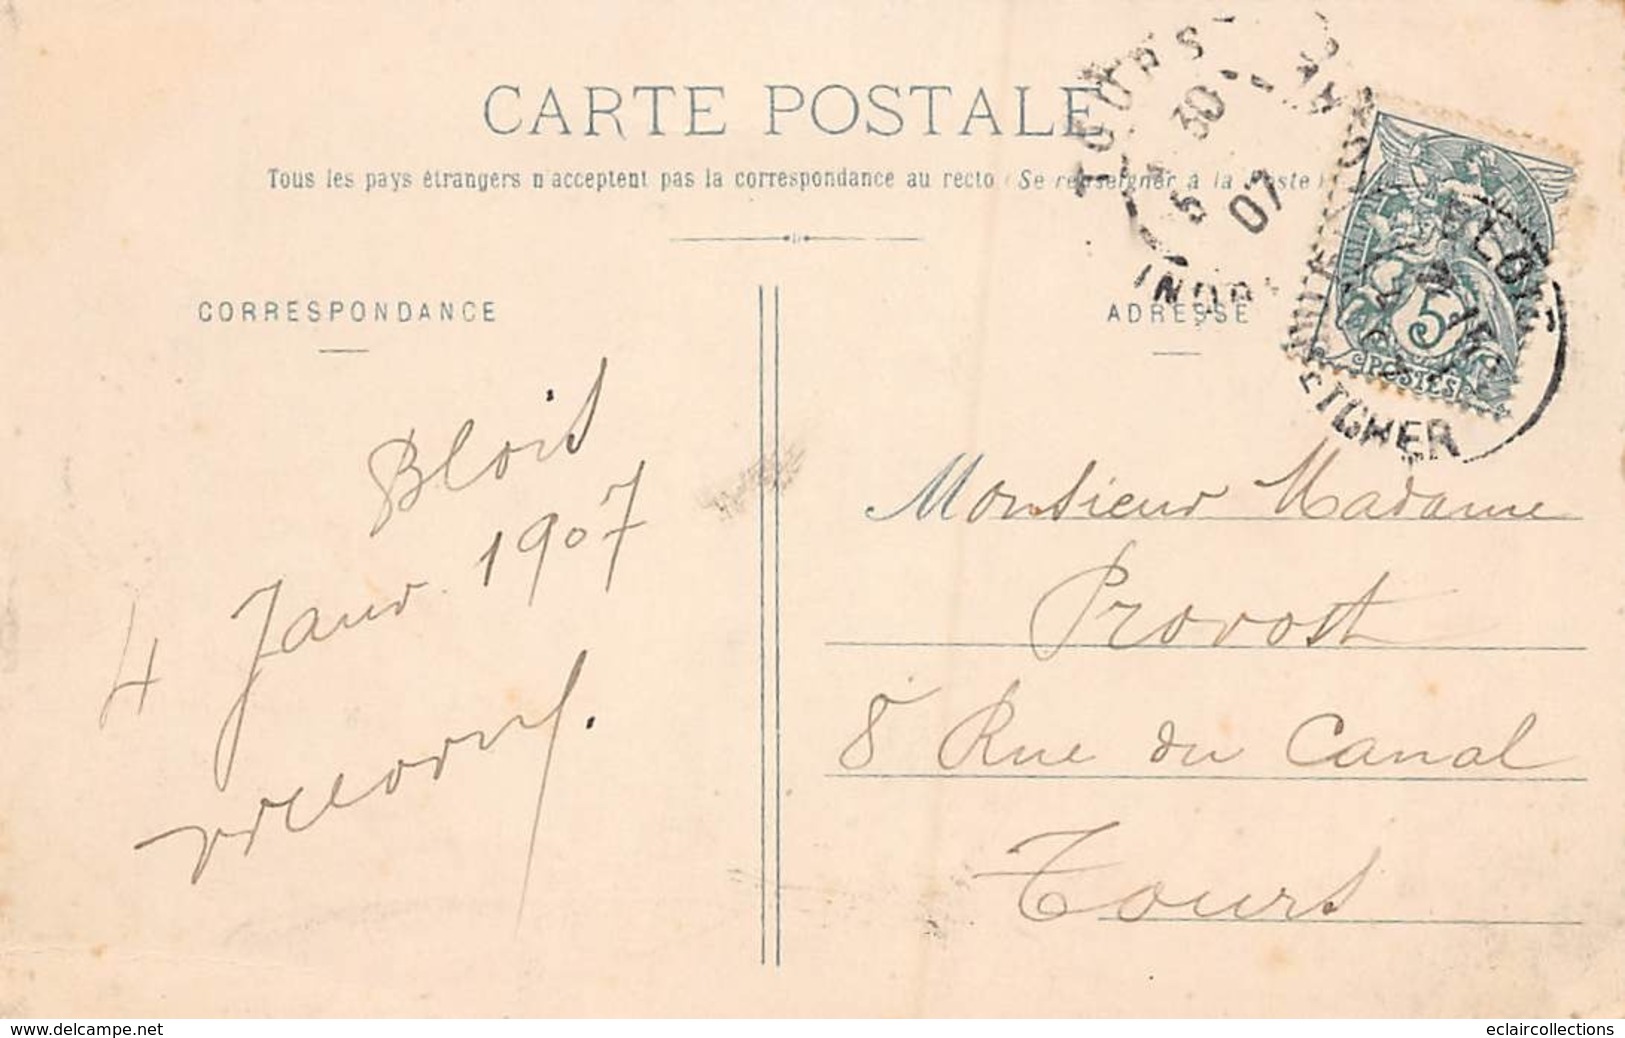 CARTE POSTALE
Tous les pays étrangers n'acceptent pas la correspondance au recto (Se renseigner à la Poste)
CORRESPONDANCE
Blois
4 Janv. 1907
ADRESSE
Monsieur Madame
Provost
8 Rue du Canal
Tours
TOURS GARE
5 30
07
INDRE
BLOIS
ET CHER
5
POSTES
www.delcampe.net
eclaircollections